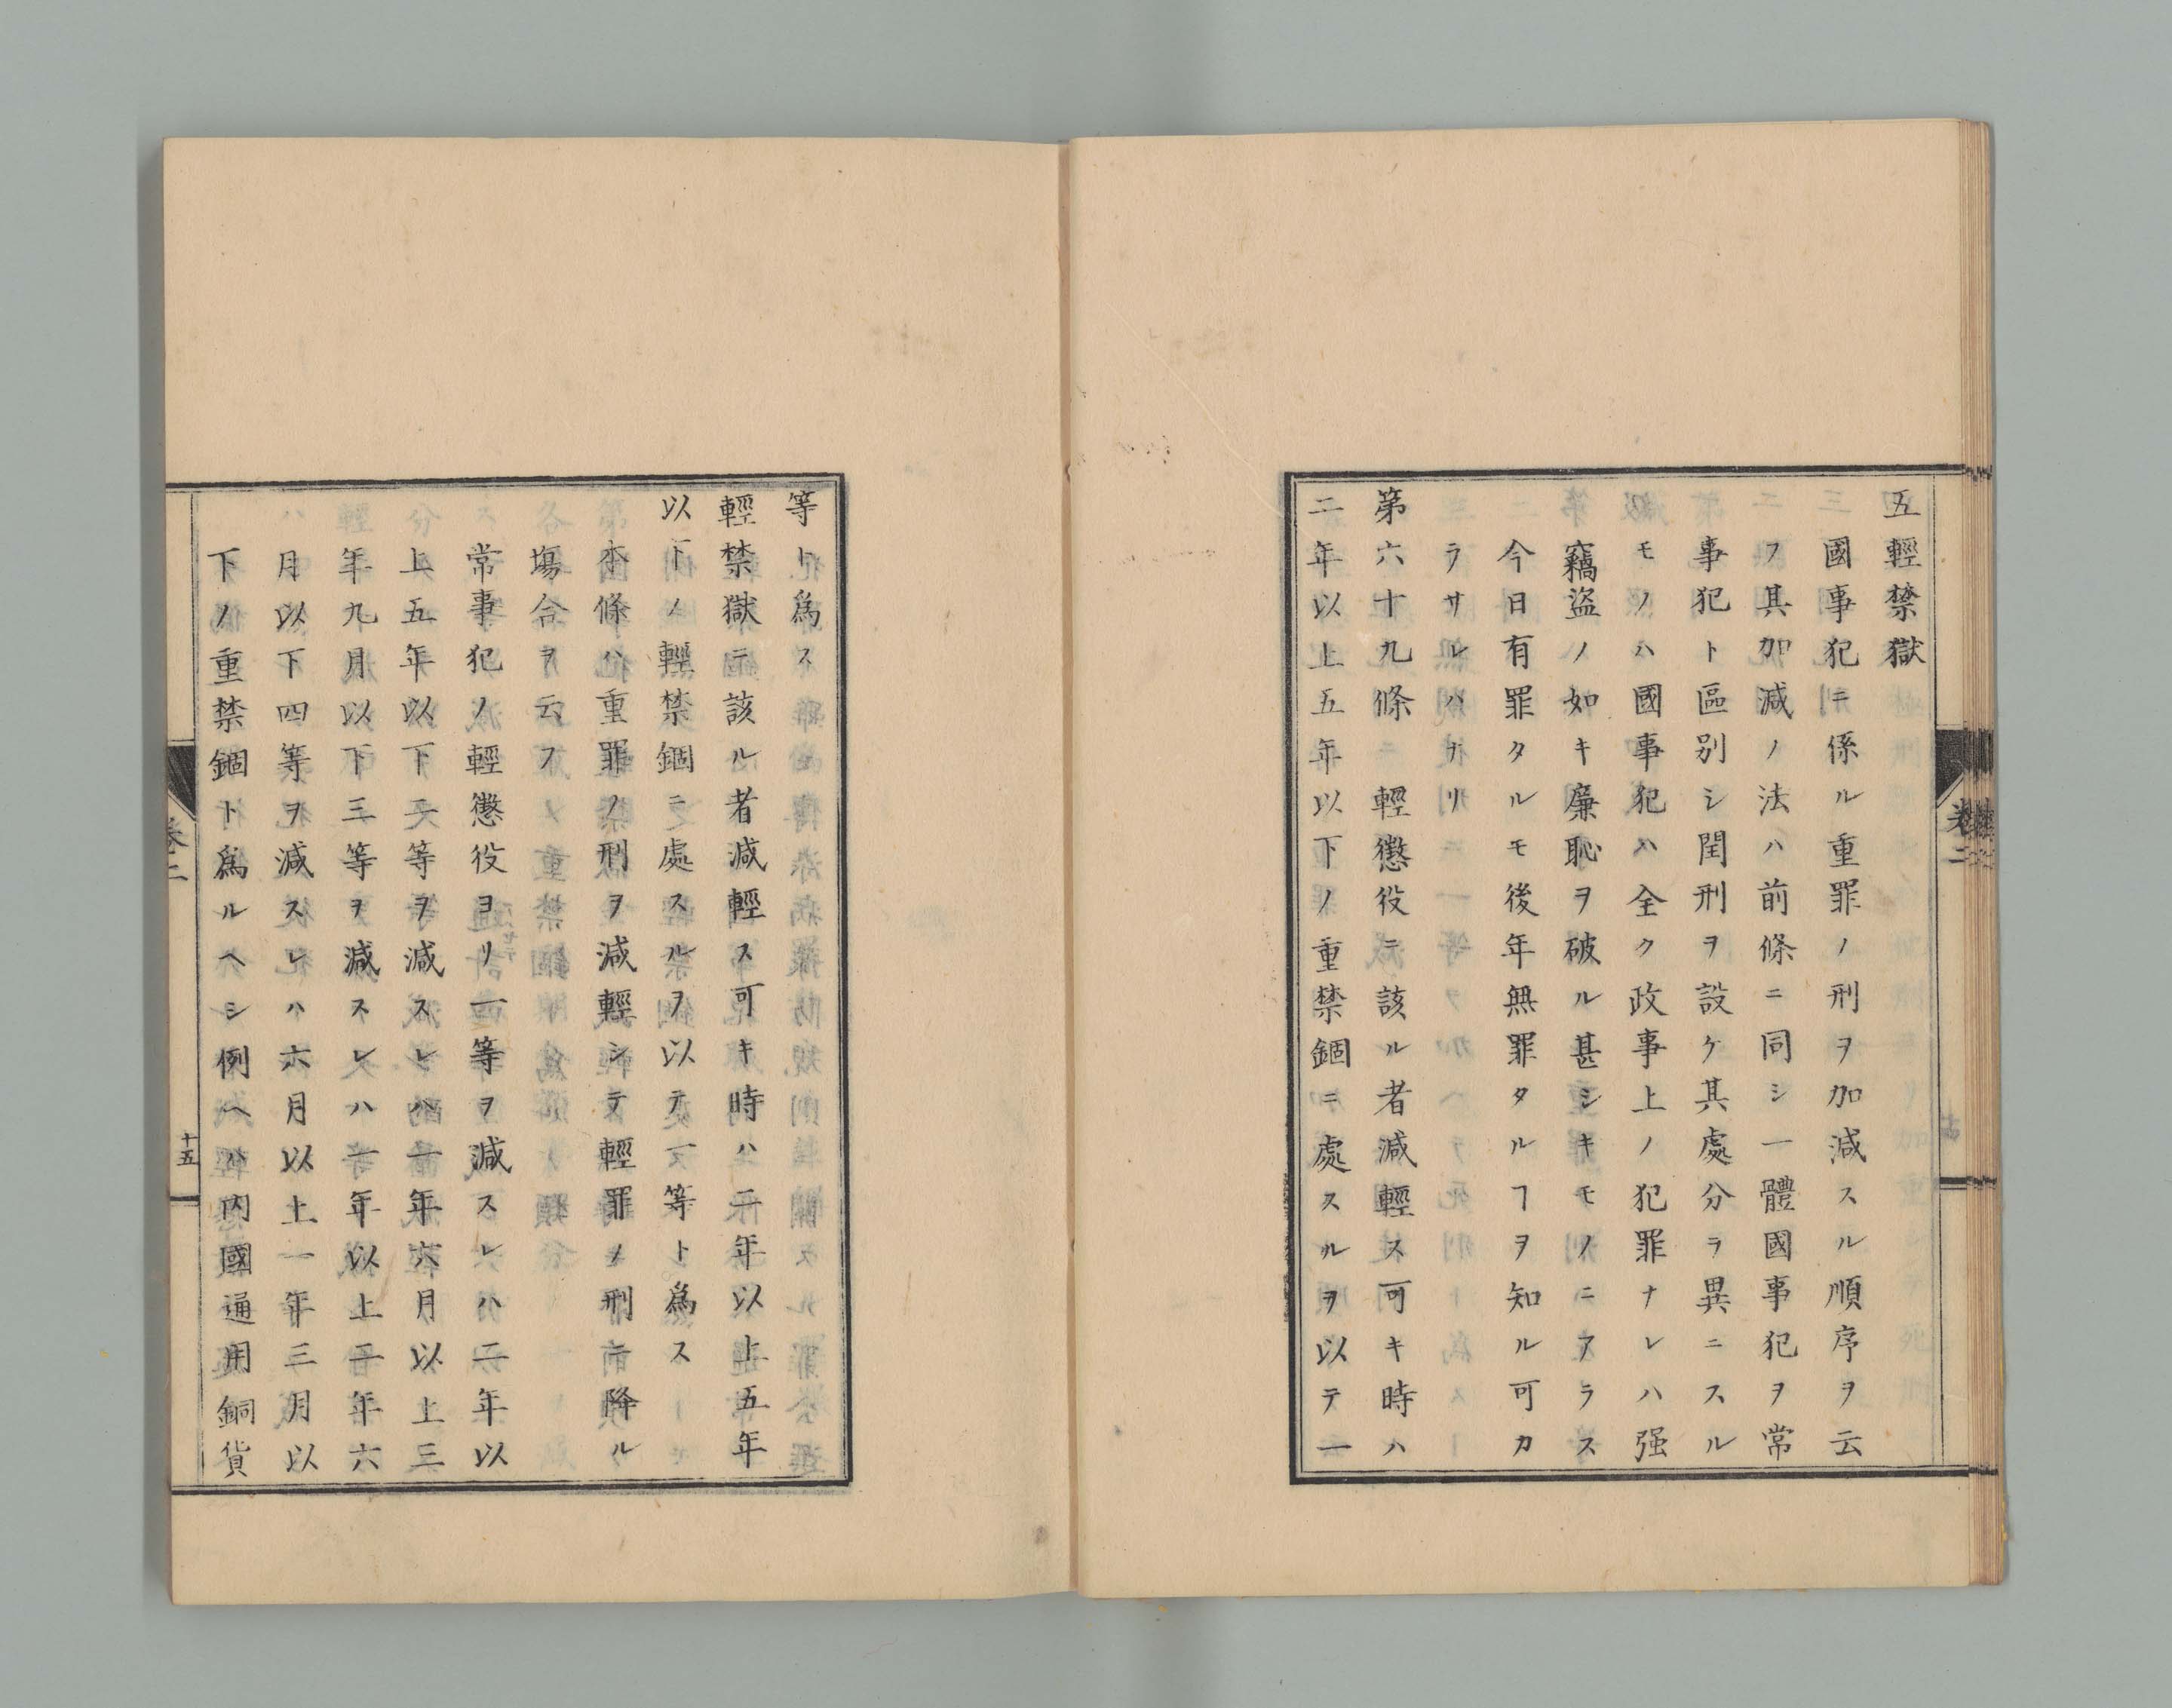 五輕禁獄
國事犯ニ係ル重罪ノ刑ヲ加減スル順序ヲ云
フ其加減ノ法ハ前條ニ同シ一體國事犯ヲ常
事犯ト區別シ閏刑ヲ設ケ其處分ヲ異ニスル
モノハ國事犯ハ全ク政事上ノ犯罪ナレハ强
竊盜ノ如キ廉恥ヲ破ル甚シキモノニアラス
今日有罪タルモ後年無罪タルヿヲ知ル可カ
ラサレハナリ
第六十九條 輕懲役ニ該ル者減輕ス可キ時ハ
二年以上五年以下ノ重禁錮ニ處スルヲ以テ一
等ト爲ス
輕禁獄ニ該ル者減輕ス可キ時ハ二年以上五年
以下ノ輕禁錮ニ處スルヲ以テ一等ト爲ス
本條ハ重罪ノ刑ヲ減輕シテ輕罪ノ刑ニ降ル
塲合ヲ云フ
常事犯ノ輕懲役ヨリ一等ヲ減スレハ二年以
上五年以下二等ヲ減スレハ一年六月以上三
年九月以下三等ヲ減スレハ一年以上二年六
月以下四等ヲ減スレハ六月以上一年三月以
下ノ重禁錮ト爲ルヘシ例ヘハ内國通用銅貨
卷二
十五
卷二